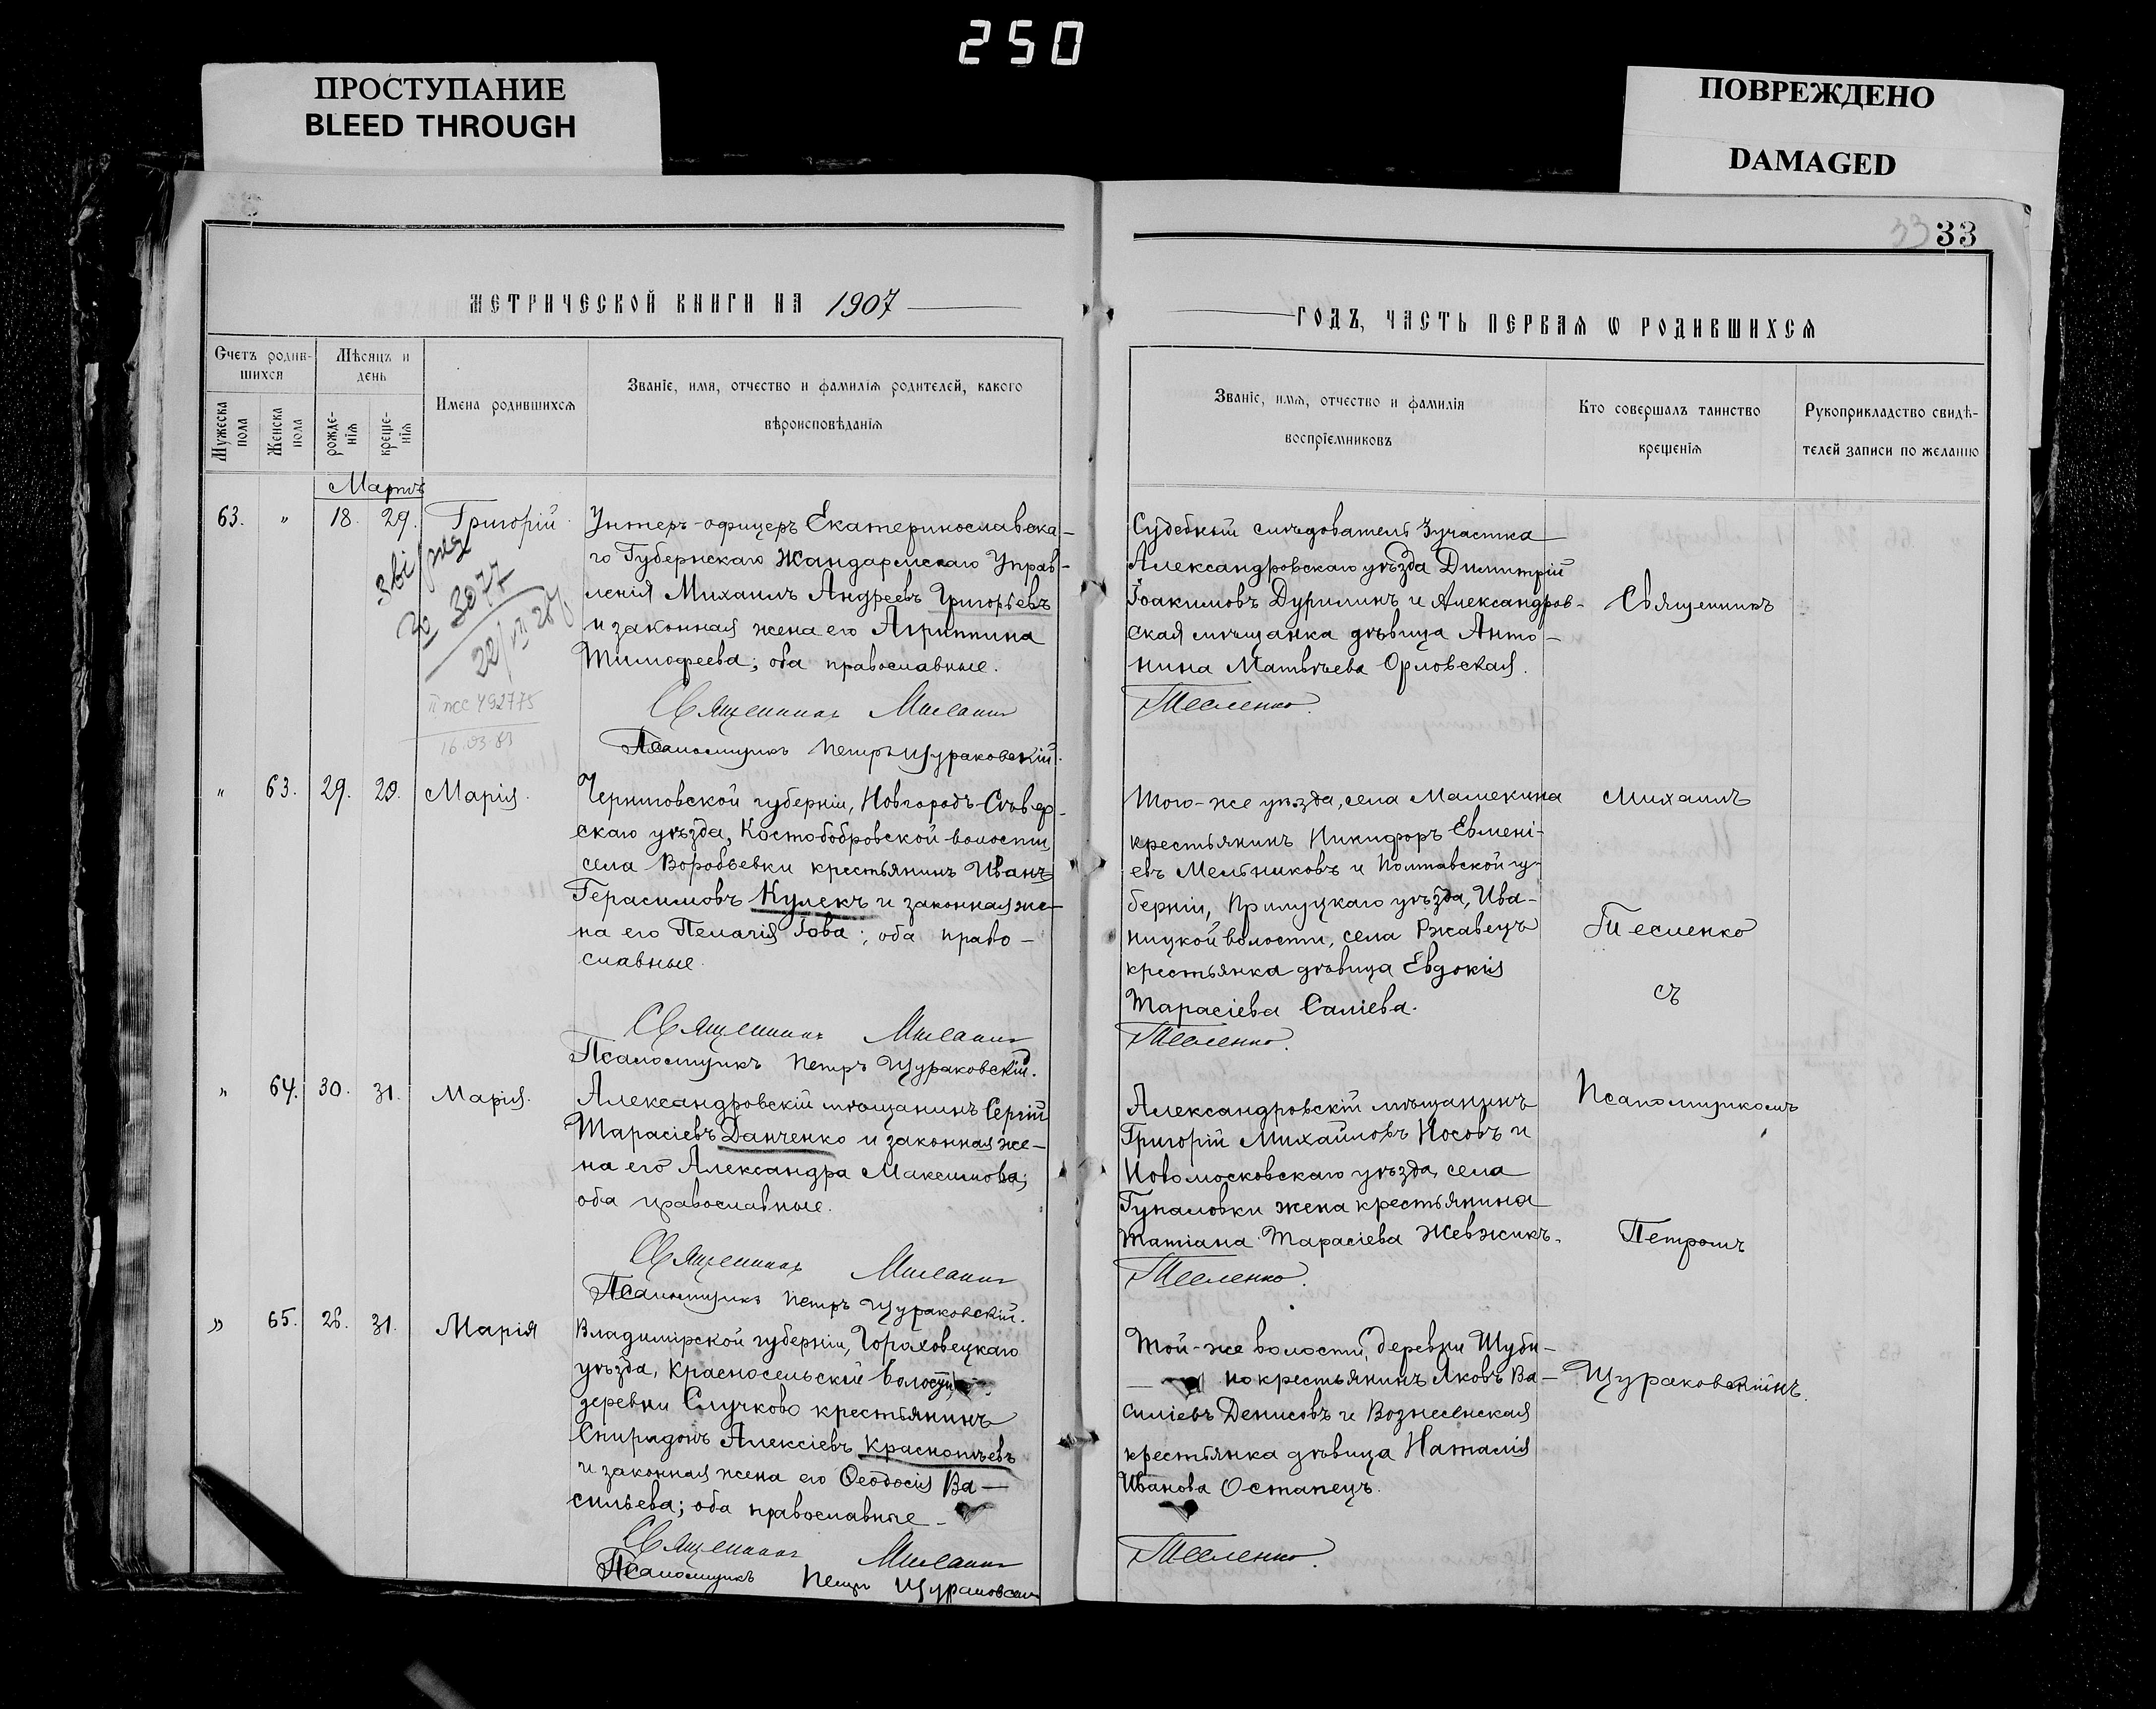 250
ПРОСТУПАНИЕ
BLEED THROUGH
ПОВРЕЖДЕНО
DAMAGED
33 33
МЕТРИЧЕСКОЙ КНИГИ НА 1907
ГОДЪ, ЧАСТЬ ПЕРВАЯ Ѡ РОДИВШИХСЯ
Счетъ родив-
шихся
Мѣсяцъ и
день
Мужеска
пола
Женска
пола
рожде-
нія
креще-
нія
Имена родившихся
Званіе, имя, отчество и фамилія родителей, какого
вѣроисповѣданія
Званіе, имя, отчество и фамилія
воспріемниковъ
Кто совершалъ таинство
крещенія
Рукоприкладство свидѣ-
телей записи по желанію
Мартъ
63. " 18. 29. Григорій
Унтеръ-офицеръ Екатеринославска-
го Губернскаго Жандармскаго Управ-
ленія Михаилъ Андреевъ Григорьевъ
и законная жена его Агриппина
Тимофеева; оба православные.
Священникъ
Псаломщикъ Петръ Щураковскій.
3077
492775
16.03.83
Судебный слѣдователь 3 участка
Александровскаго уѣзда Димитрій
Іоакимовъ Дурилинъ и Александров-
ская мѣщанка дѣвица Анто-
нина Матвѣева Орловская.
Тесленко.
" 63. 29. 29. Марія.
Черниговской губерніи, Новгородъ-Сѣвер-
скаго уѣзда, Костобобровской волости,
села Воробьевки крестьянинъ Иванъ
Герасимовъ Кулекъ и законная же-
на его Пелагія Іова; оба право-
славные.
Священникъ
Псаломщикъ Петръ Щураковскій.
Того-же уѣзда, села Мамекина
крестьянинъ Никифоръ Евмені-
евъ Мельниковъ и Полтавской гу-
берніи, Прилуцкаго уѣзда, Ива-
ницкой волости, села Ржавецъ
крестьянка дѣвица Евдокія
Тарасіева Саліева.
Тесленко.
" 64. 30. 31. Марія.
Александровскій мѣщанинъ Сергій
Тарасіевъ Данченко и законная же-
на его Александра Максимова;
оба православные.
Священникъ
Псаломщикъ Петръ Щураковскій.
Александровскій мѣщанинъ
Григорій Михайловъ Носовъ и
Новомосковскаго уѣзда, села
Гупаловки жена крестьянина
Татіана Тарасіева Жевжикъ.
Тесленко.
" 65. 26. 31. Марія
Владимірской губерніи, Гороховецкаго
уѣзда, Красносельской волости,
деревни Случково крестьянинъ
Спиридонъ Алексіевъ Краснопѣевъ
и законная жена его Ѳеодосія Ва-
сильева; оба православные
Священникъ
Псаломщикъ Петръ Щураковскій
Той-же волости, деревни Шуби-
но крестьянинъ Яковъ Ва-
силіевъ Денисовъ и Вознесенская
крестьянка дѣвица Наталія
Иванова Остапецъ.
Тесленко.
Священникъ
Михаилъ
Тесленко
съ
Псаломщикомъ
Петромъ
Щураковскимъ.